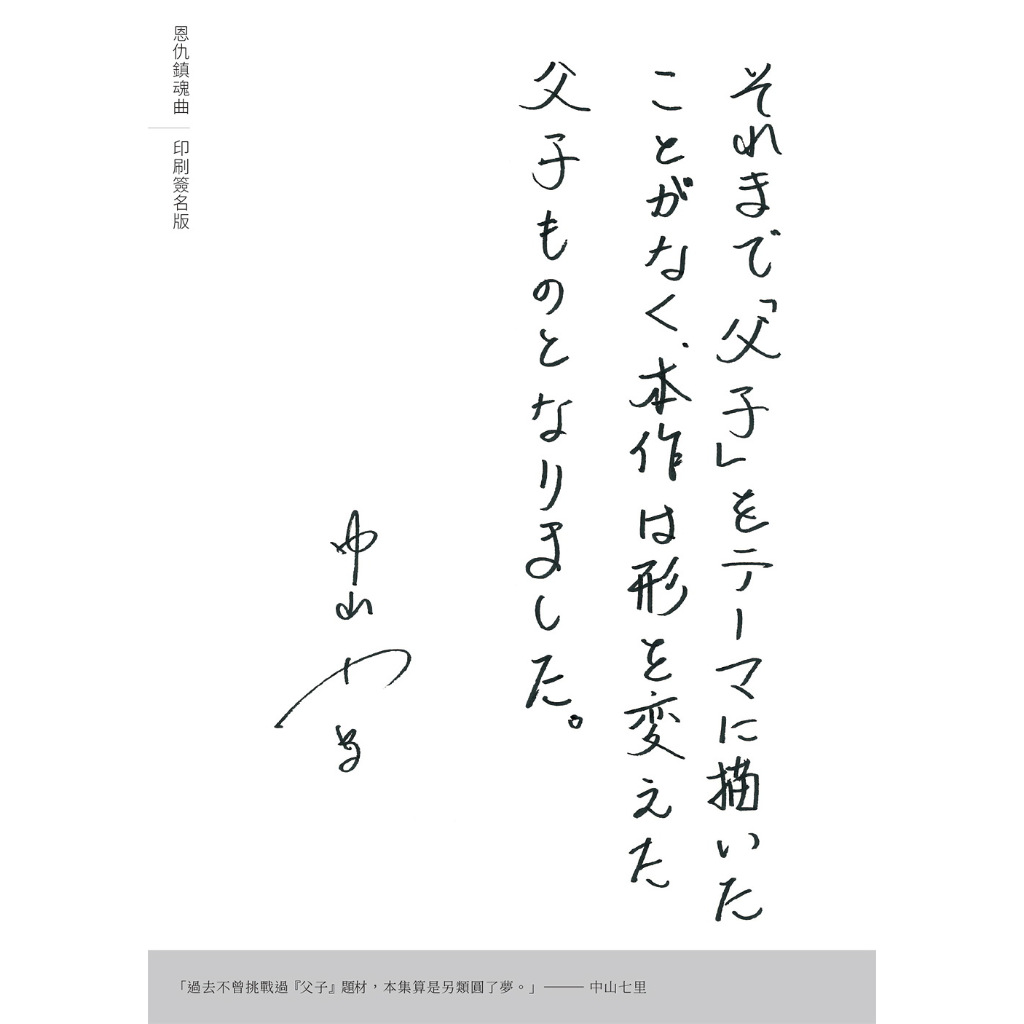 それまで「父子」をテーマに描いた
ことがなく、本作は形を変えた
父子ものとなりました。
中山七里
恩仇鎮魂曲
印刷簽名版
「過去不曾挑戰過『父子』題材，本集算是另類圓了夢。」——— 中山七里